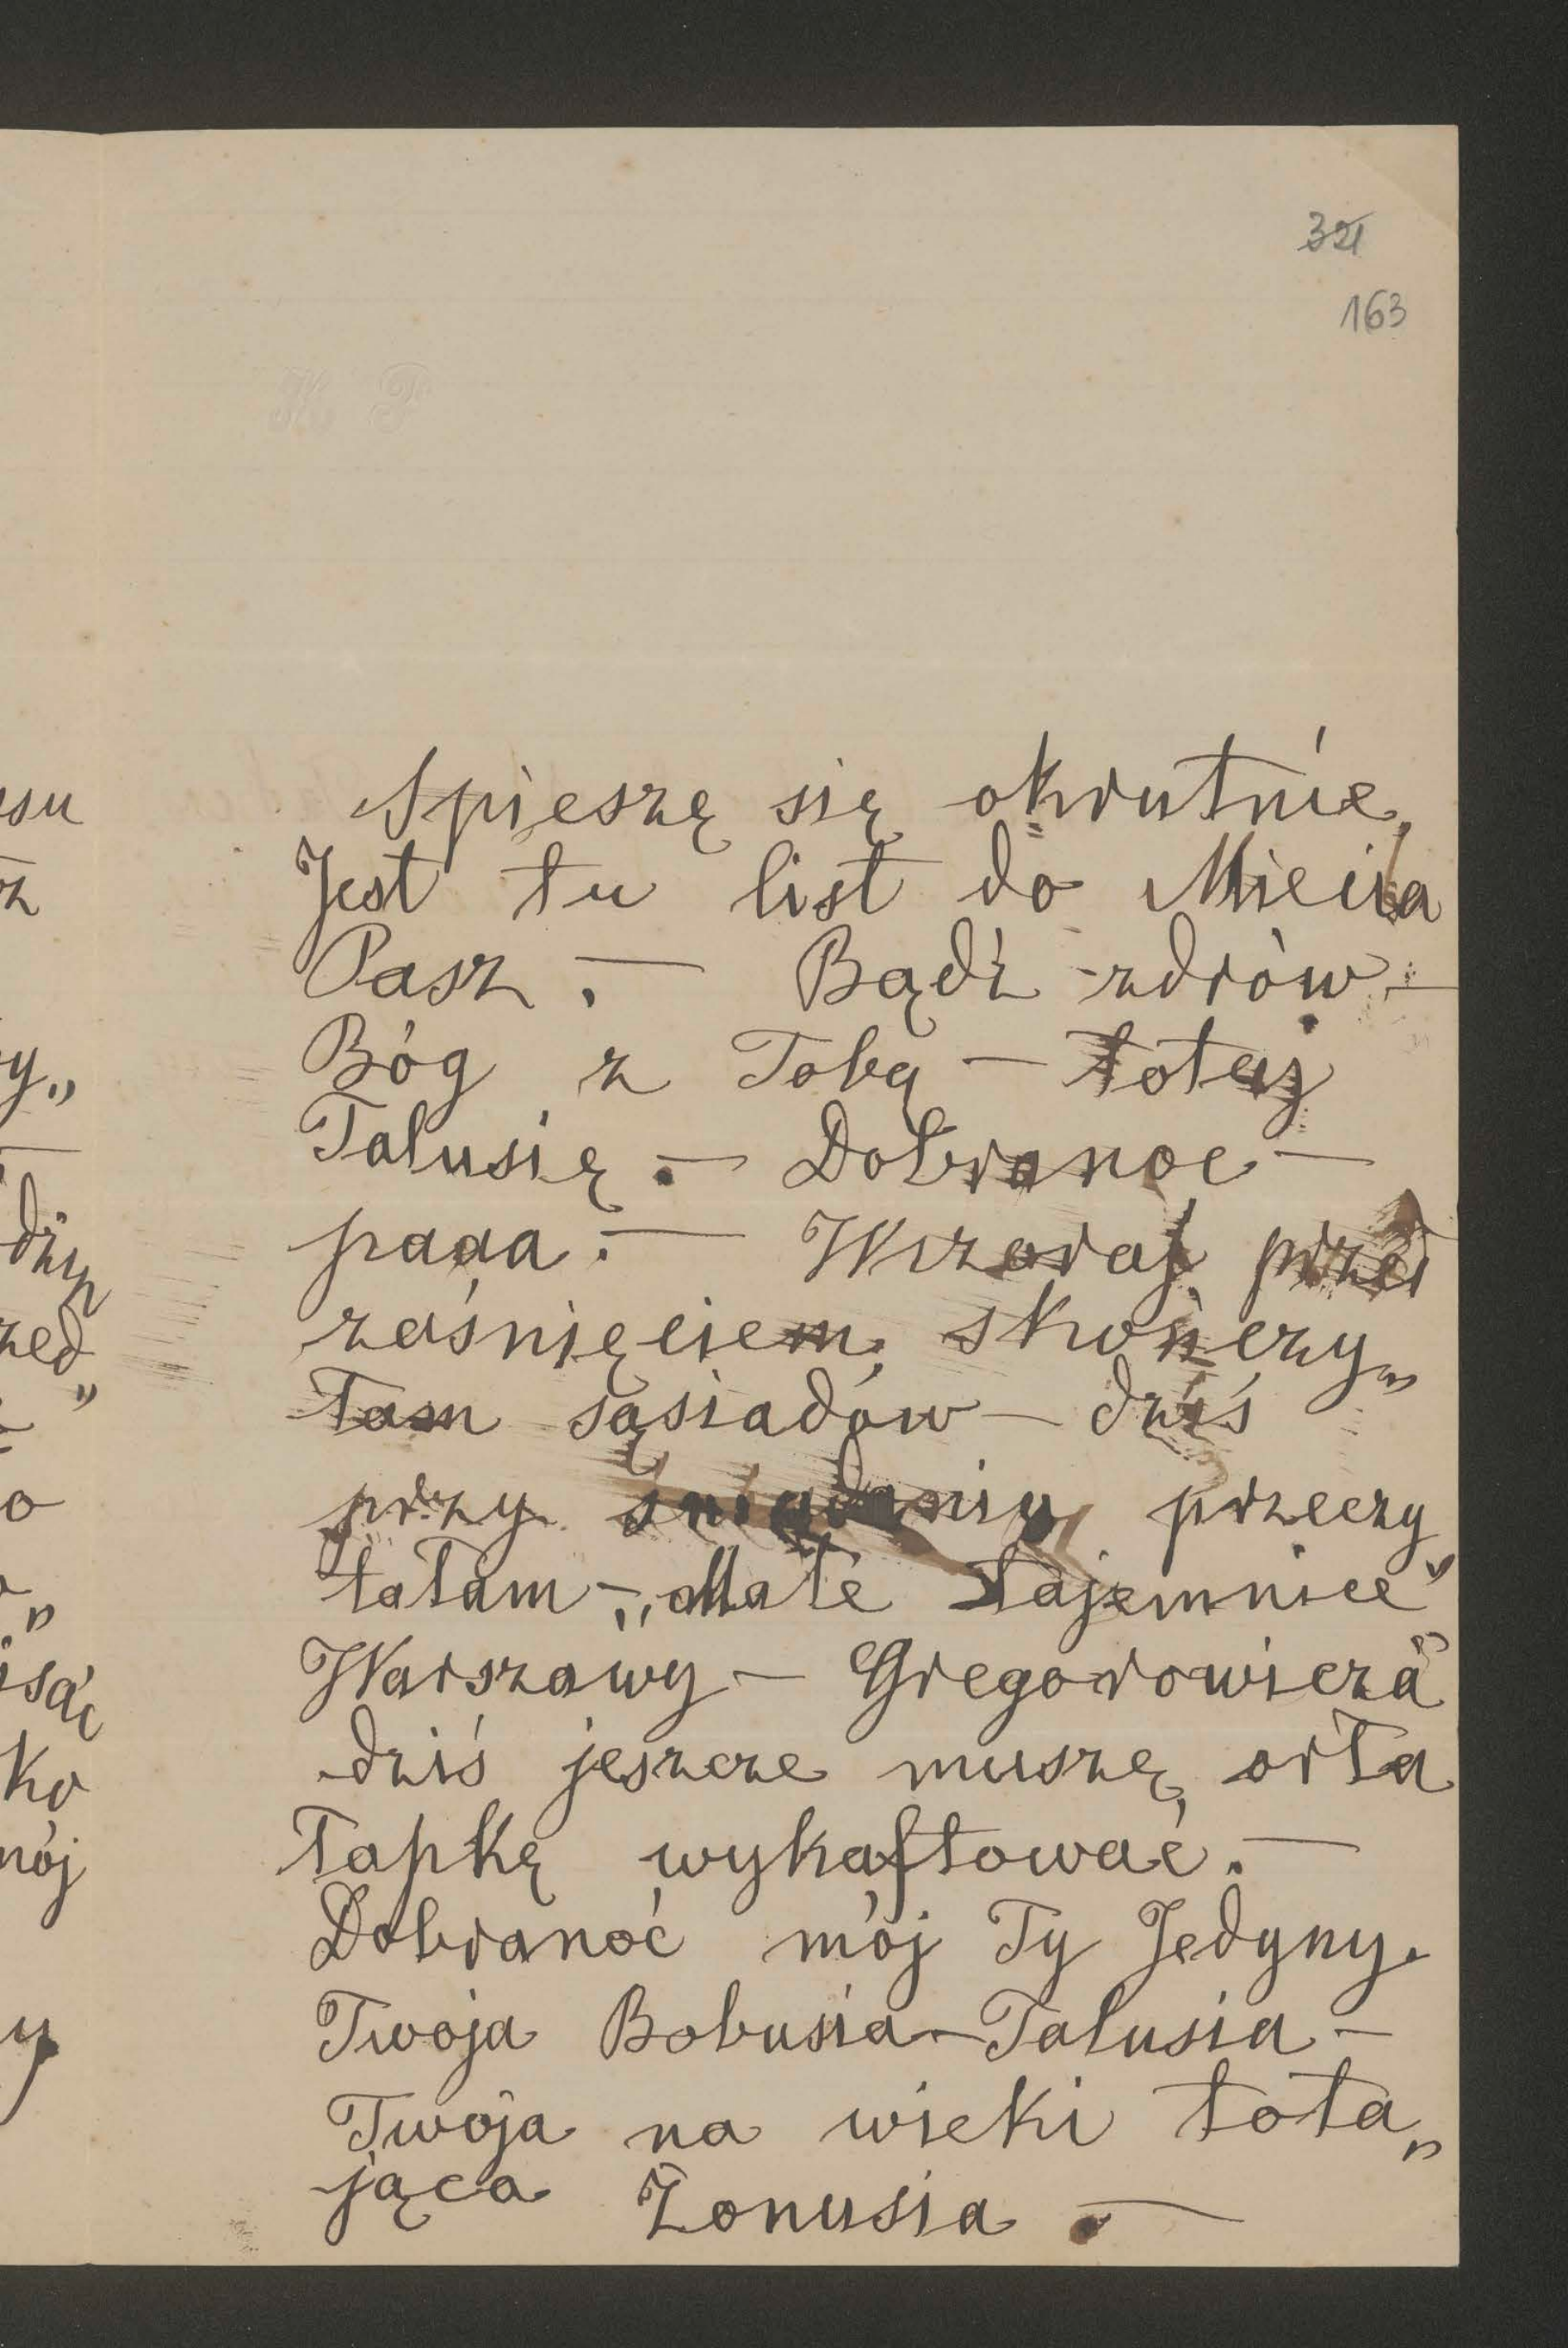 321
163
K P
Spieszę się okrutnie,
Jest tu list do Miecia
Pasz. — Bądź zdrów —
Bóg z Tobą — totaj
Talusię. — Dobranoc —
paaa. — Wczoraj przed
zaśnięciem skończy„
łam sąsiadów — dziś
przy śniadaniu przeczy
tałam — „Małe tajemnice"
Warszawy — Gregorowicza"
dziś jeszcze muszę orła
łapkę wykaftować. —
Dobranoć mój Ty Jedyny.
Twoja Bobusia — Talusia —
Twoja na wieki tota„
jąca Żonusia. —